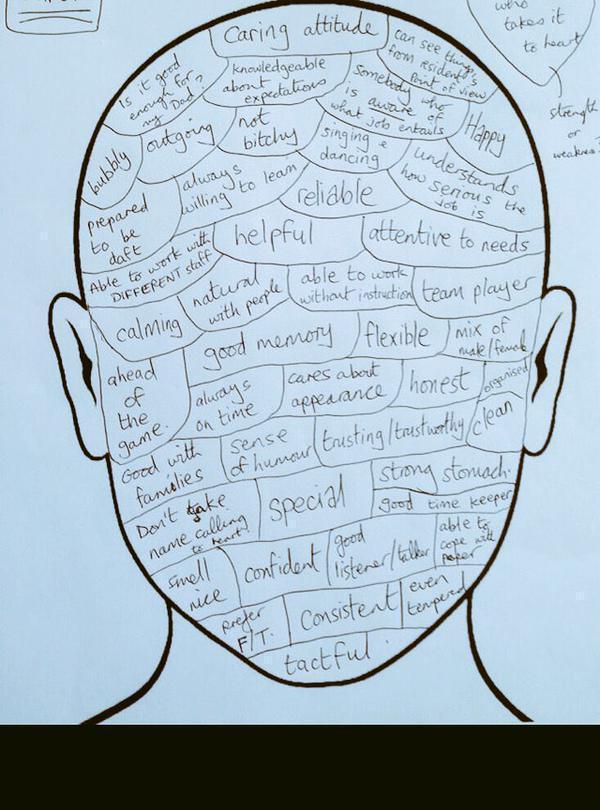 who
takes it
to heart
strength
or
weakness?
Caring attitude
can see things
from resident's
Point of view
Is it good
enough for
my Dad?
knowledgeable
about
expectations
Somebody who
is aware of
what job entails
Happy
bubbly
outgoing
not
bitchy
singing &
dancing
understands
how serious the
job is
prepared
to be
daft
always
willing to learn
reliable
Able to work with
DIFFERENT staff
helpful
attentive to needs
natural
with people
able to work
without instruction
team player
calming
good memory
flexible
mix of
male/female
ahead
of
the
game.
always
on time
cares about
appearance
honest
organised
clean
Good with
families
sense
of humour
trusting/trustworthy
strong stomach.
good time keeper
Don't take
name calling
to heart!
special
able to
cope with
smell
nice
confident
good
listener/talker
prefer
F/T.
Consistent
even
tempered
tactful.